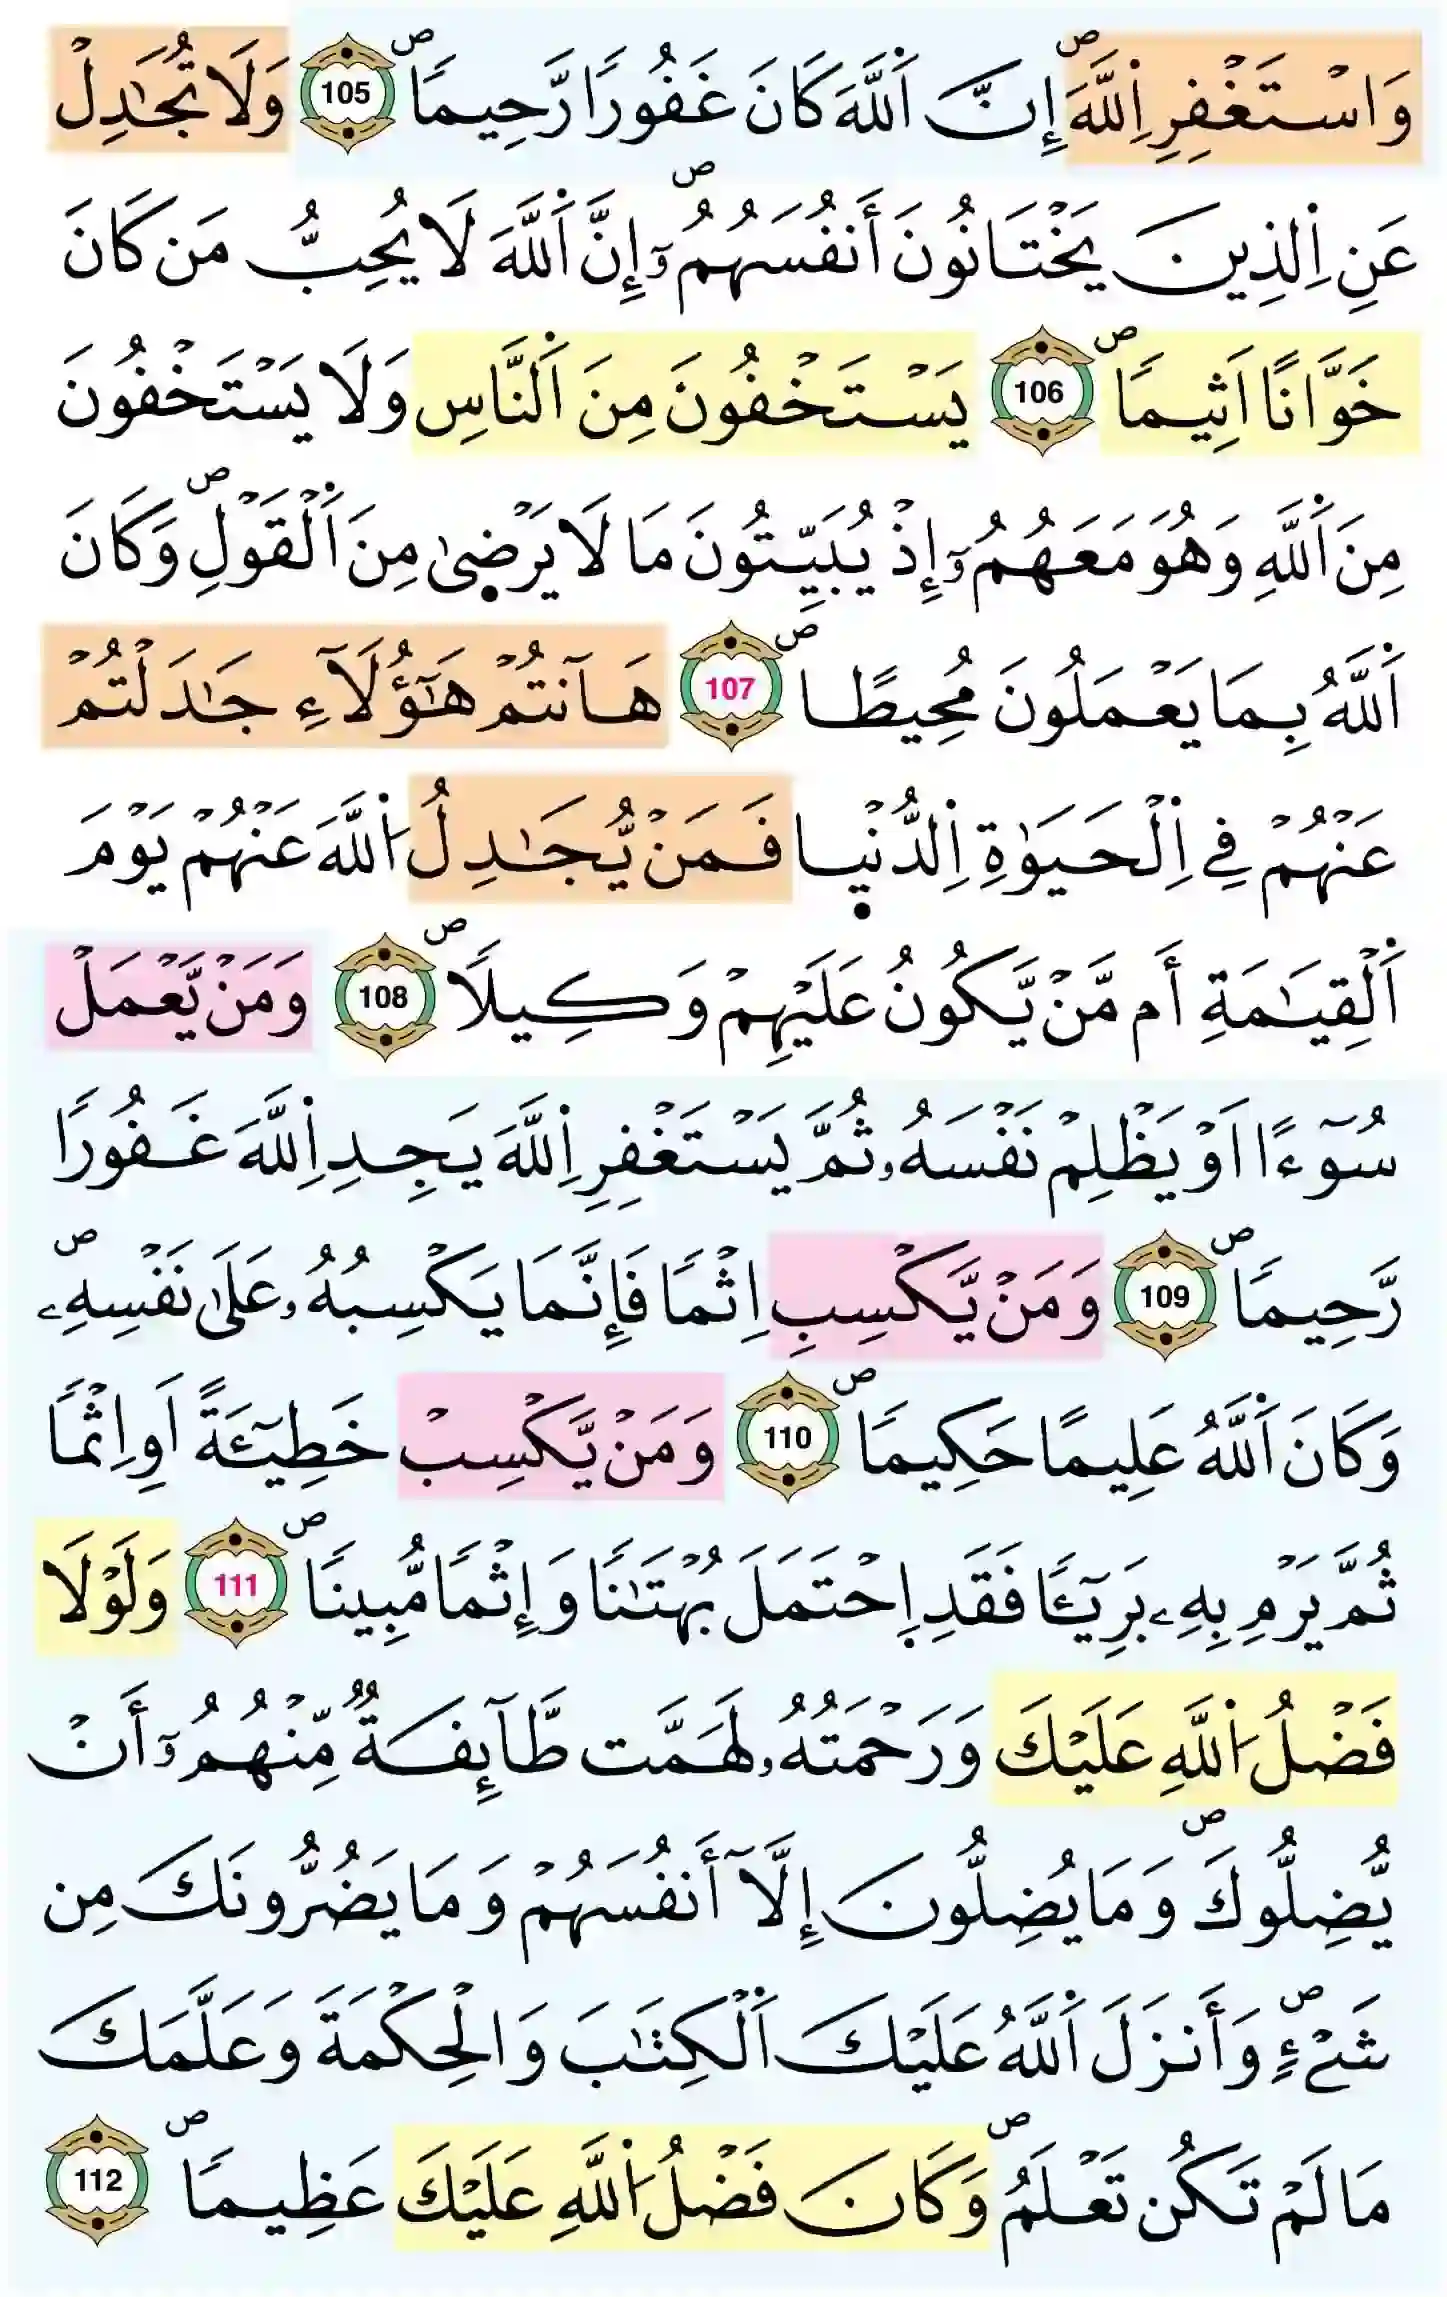 وَاسْتَغْفِرِ اِللَّهَۖ إِنَّ اَللَّهَ كَانَ غَفُورًا رَّحِيمًاۖ 105 وَلَا تُجَٰدِلْ
عَنِ اِلذِينَ يَخْتَانُونَ أَنفُسَهُمُۥٓۖ إِنَّ اَللَّهَ لَا يُحِبُّ مَن كَانَ
خَوَّانًا اَثِيمًاۖ 106 يَسْتَخْفُونَ مِنَ اَلنَّاسِ وَلَا يَسْتَخْفُونَ
مِنَ اَللَّهِ وَهُوَ مَعَهُمُۥٓ إِذْ يُبَيِّتُونَ مَا لَا يَرْضِىٰ مِنَ اَلْقَوْلِۖ وَكَانَ
اَللَّهُ بِمَا يَعْمَلُونَ مُحِيطًاۖ 107 هَآنتُمْ هَٰٓؤُلَآءِ جَٰدَلْتُمْ
عَنْهُمْ فِے اِلْحَيَوٰةِ اِلدُّنْيِا فَمَنْ يُّجَٰدِلُ اَللَّهَ عَنْهُمْ يَوْمَ
اَلْقِيَٰمَةِ أَم مَّنْ يَّكُونُ عَلَيْهِمْ وَكِيلًاۖ 108 وَمَنْ يَّعْمَلْ
سُوٓءًا اَوْ يَظْلِمْ نَفْسَهُۥ ثُمَّ يَسْتَغْفِرِ اِللَّهَ يَجِدِ اِللَّهَ غَفُورًا
رَّحِيمًاۖ 109 وَمَنْ يَّكْسِبِ اِثْمًا فَإِنَّمَا يَكْسِبُهُۥ عَلَىٰ نَفْسِهِۦۖ
وَكَانَ اَللَّهُ عَلِيمًا حَكِيمًاۖ 110 وَمَنْ يَّكْسِبْ خَطِيٓـَٔةً اَوِ اِثْمًا
ثُمَّ يَرْمِ بِهِۦ بَرِيٓـًٔا فَقَدِ اِ۪حْتَمَلَ بُهْتَٰنًا وَإِثْمًا مُّبِينًاۖ 111 وَلَوْلَا
فَضْلُ اُللَّهِ عَلَيْكَ وَرَحْمَتُهُۥ لَهَمَّت طَّآئِفَةٌ مِّنْهُمُۥٓ أَنْ
يُّضِلُّوكَۖ وَمَا يُضِلُّونَ إِلَّآ أَنفُسَهُمْ وَمَا يَضُرُّونَكَ مِن
شَےْءٍۖ وَأَنزَلَ اَللَّهُ عَلَيْكَ اَلْكِتَٰبَ وَالْحِكْمَةَ وَعَلَّمَكَ
مَا لَمْ تَكُن تَعْلَمُۖ وَكَانَ فَضْلُ اُللَّهِ عَلَيْكَ عَظِيمًاۖ 112